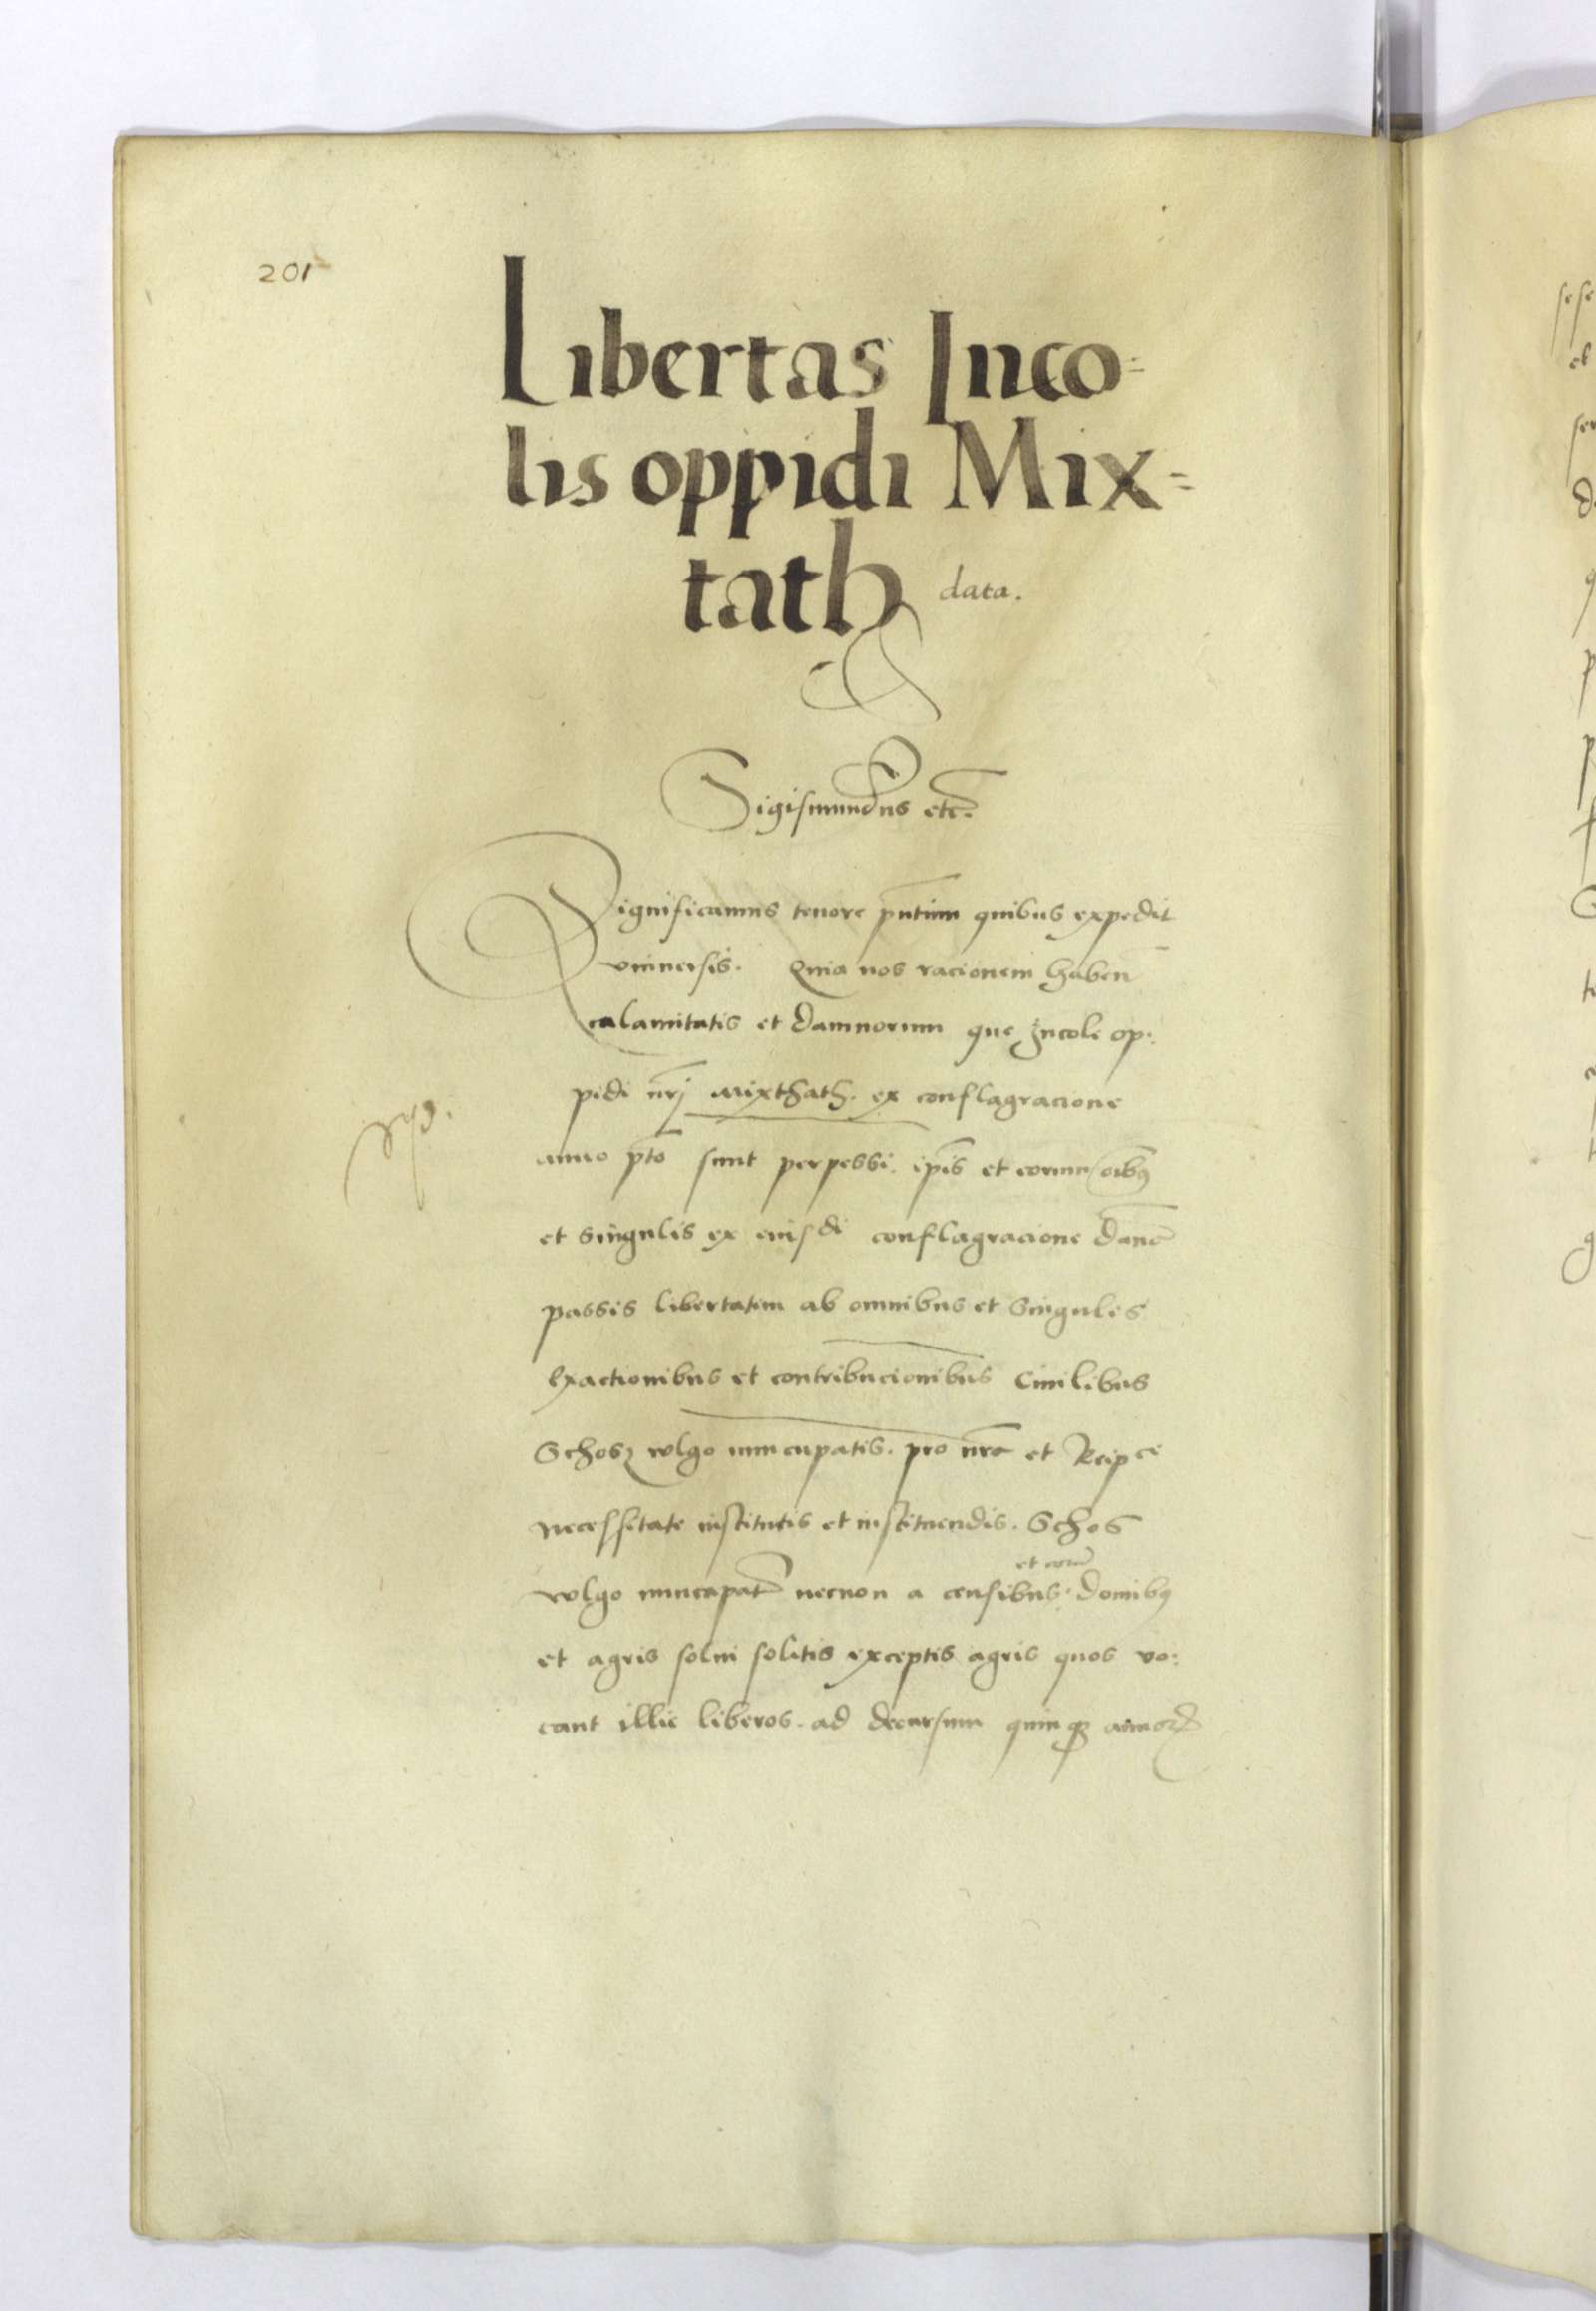 201
Libertas Inco=
lis oppidi Mix=
tath data.
Sigismundus etc.
Significamus tenore pñtium quibus expedit
vniuersis. Quia nos racionem habeñ
calamitatis et damnorum que Incole op:
pidi nrj Mixthath. ex conflagracione
anno pto sunt perpessi. ipis et eorum oibq
et singulis ex euisdi conflagracione dano
passis libertatem ab omnibus et singulis
exactionibus et contribucionibus Ciuilibus
Schosz wlgo nuncupatis. pro nra et Reipce
necessitate institutis et instituendis. Schos
et
wlgo nuncapat necnon a censibus. domibq
et agris solui solitis exceptis agris quos vo:
cant illic liberos. ad decursum quinqz annor